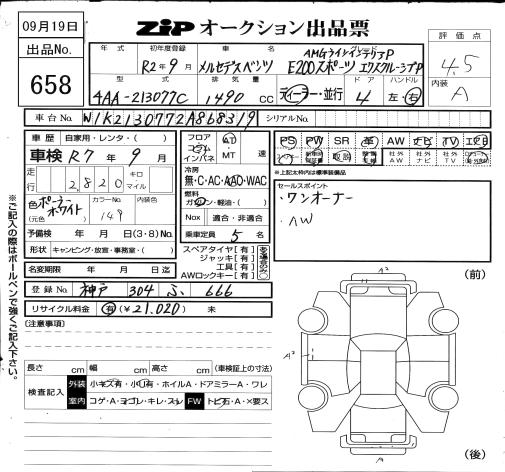 09月19日
出品No.
658
ZiP オークション出品票
評価点
4.5
内装
A
年式 初年度登録 車名 グレード
R2年9月 メルセデスベンツ AMGラインインテリアP
E200スポーツ エクスクルーシブP
型式 排気量 ドア ハンドル
4AA-213077C 1490 CC ディーラー・並行 4 左・右
車台No. W1K2130772A868319 シリアルNo.
車歴 自家用・レンタ・( )
車検 R7年9月
走行 2,820 キロ マイル
色 (元色) ポーラーホワイト カラーNo. 149 内装色
予備検 年 月 日(3・8)No.
形状 キャンピング・放宣・事務室・( )
名変期限 年 月 日迄
フロア コラム インパネ AT・MT 速
冷房
無・C・AC・AAC・WAC
燃料
ガソリン・軽油・( )
Nox 適合・非適合
乗車定員 5名
スペアタイヤ[有]
ジャッキ[有]
工具[有]
AWロックキー[有]
PS PW SR 革 AW ナビ TV エアB
取説 社外AW 社外ナビ 社外TV
*上記太枠内は標準装備品
セールスポイント
・ワンオーナー
・AW
登録No. 神戸 304 ふ 666
リサイクル料金 有(¥21,020) 未
(注意事項)
長さ cm 幅 cm 高さ cm (車検証上の寸法)
検査記入 外装 小キズ有・小凹有・ホイルA・ドアミラーA・ワレ
室内 コゲ・A・ヨゴレ・キレ・スレ FW トビ石・A・×要ス
※ご記入の際はボールペンで強くご記入下さい。
(前)
A2
A2
A2
(後)